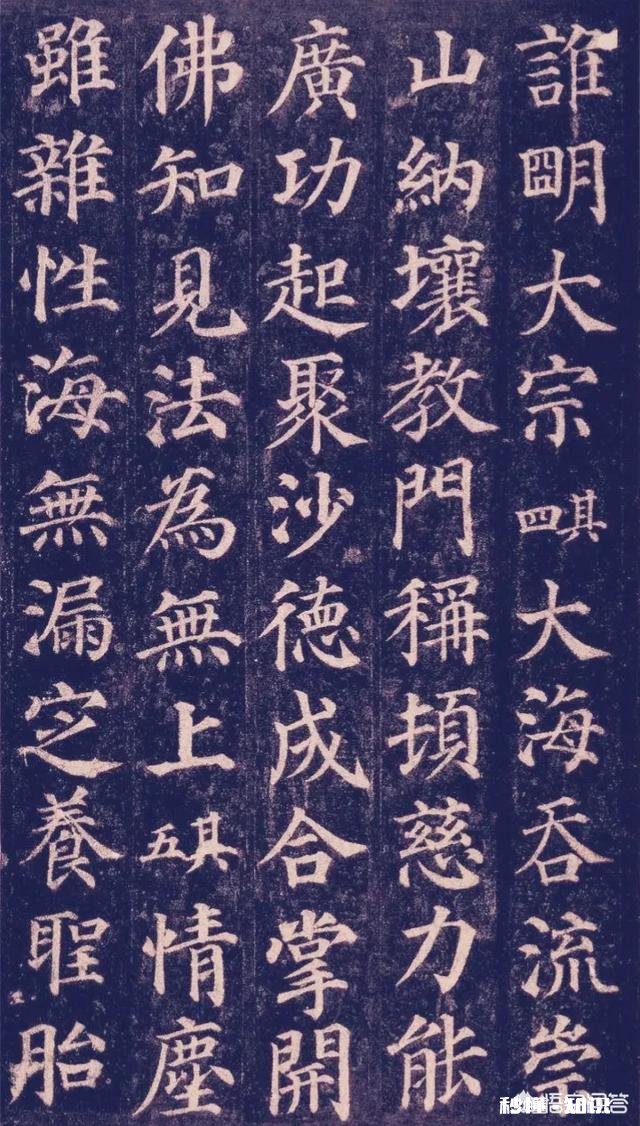 誰朙大宗其四大海吞流崇
山納壤教門稱頓慈力能
廣功起聚沙德成合掌開
佛知見法為無上其五情塵
雖雜性海無漏定養聖胎
悟空问答
知识